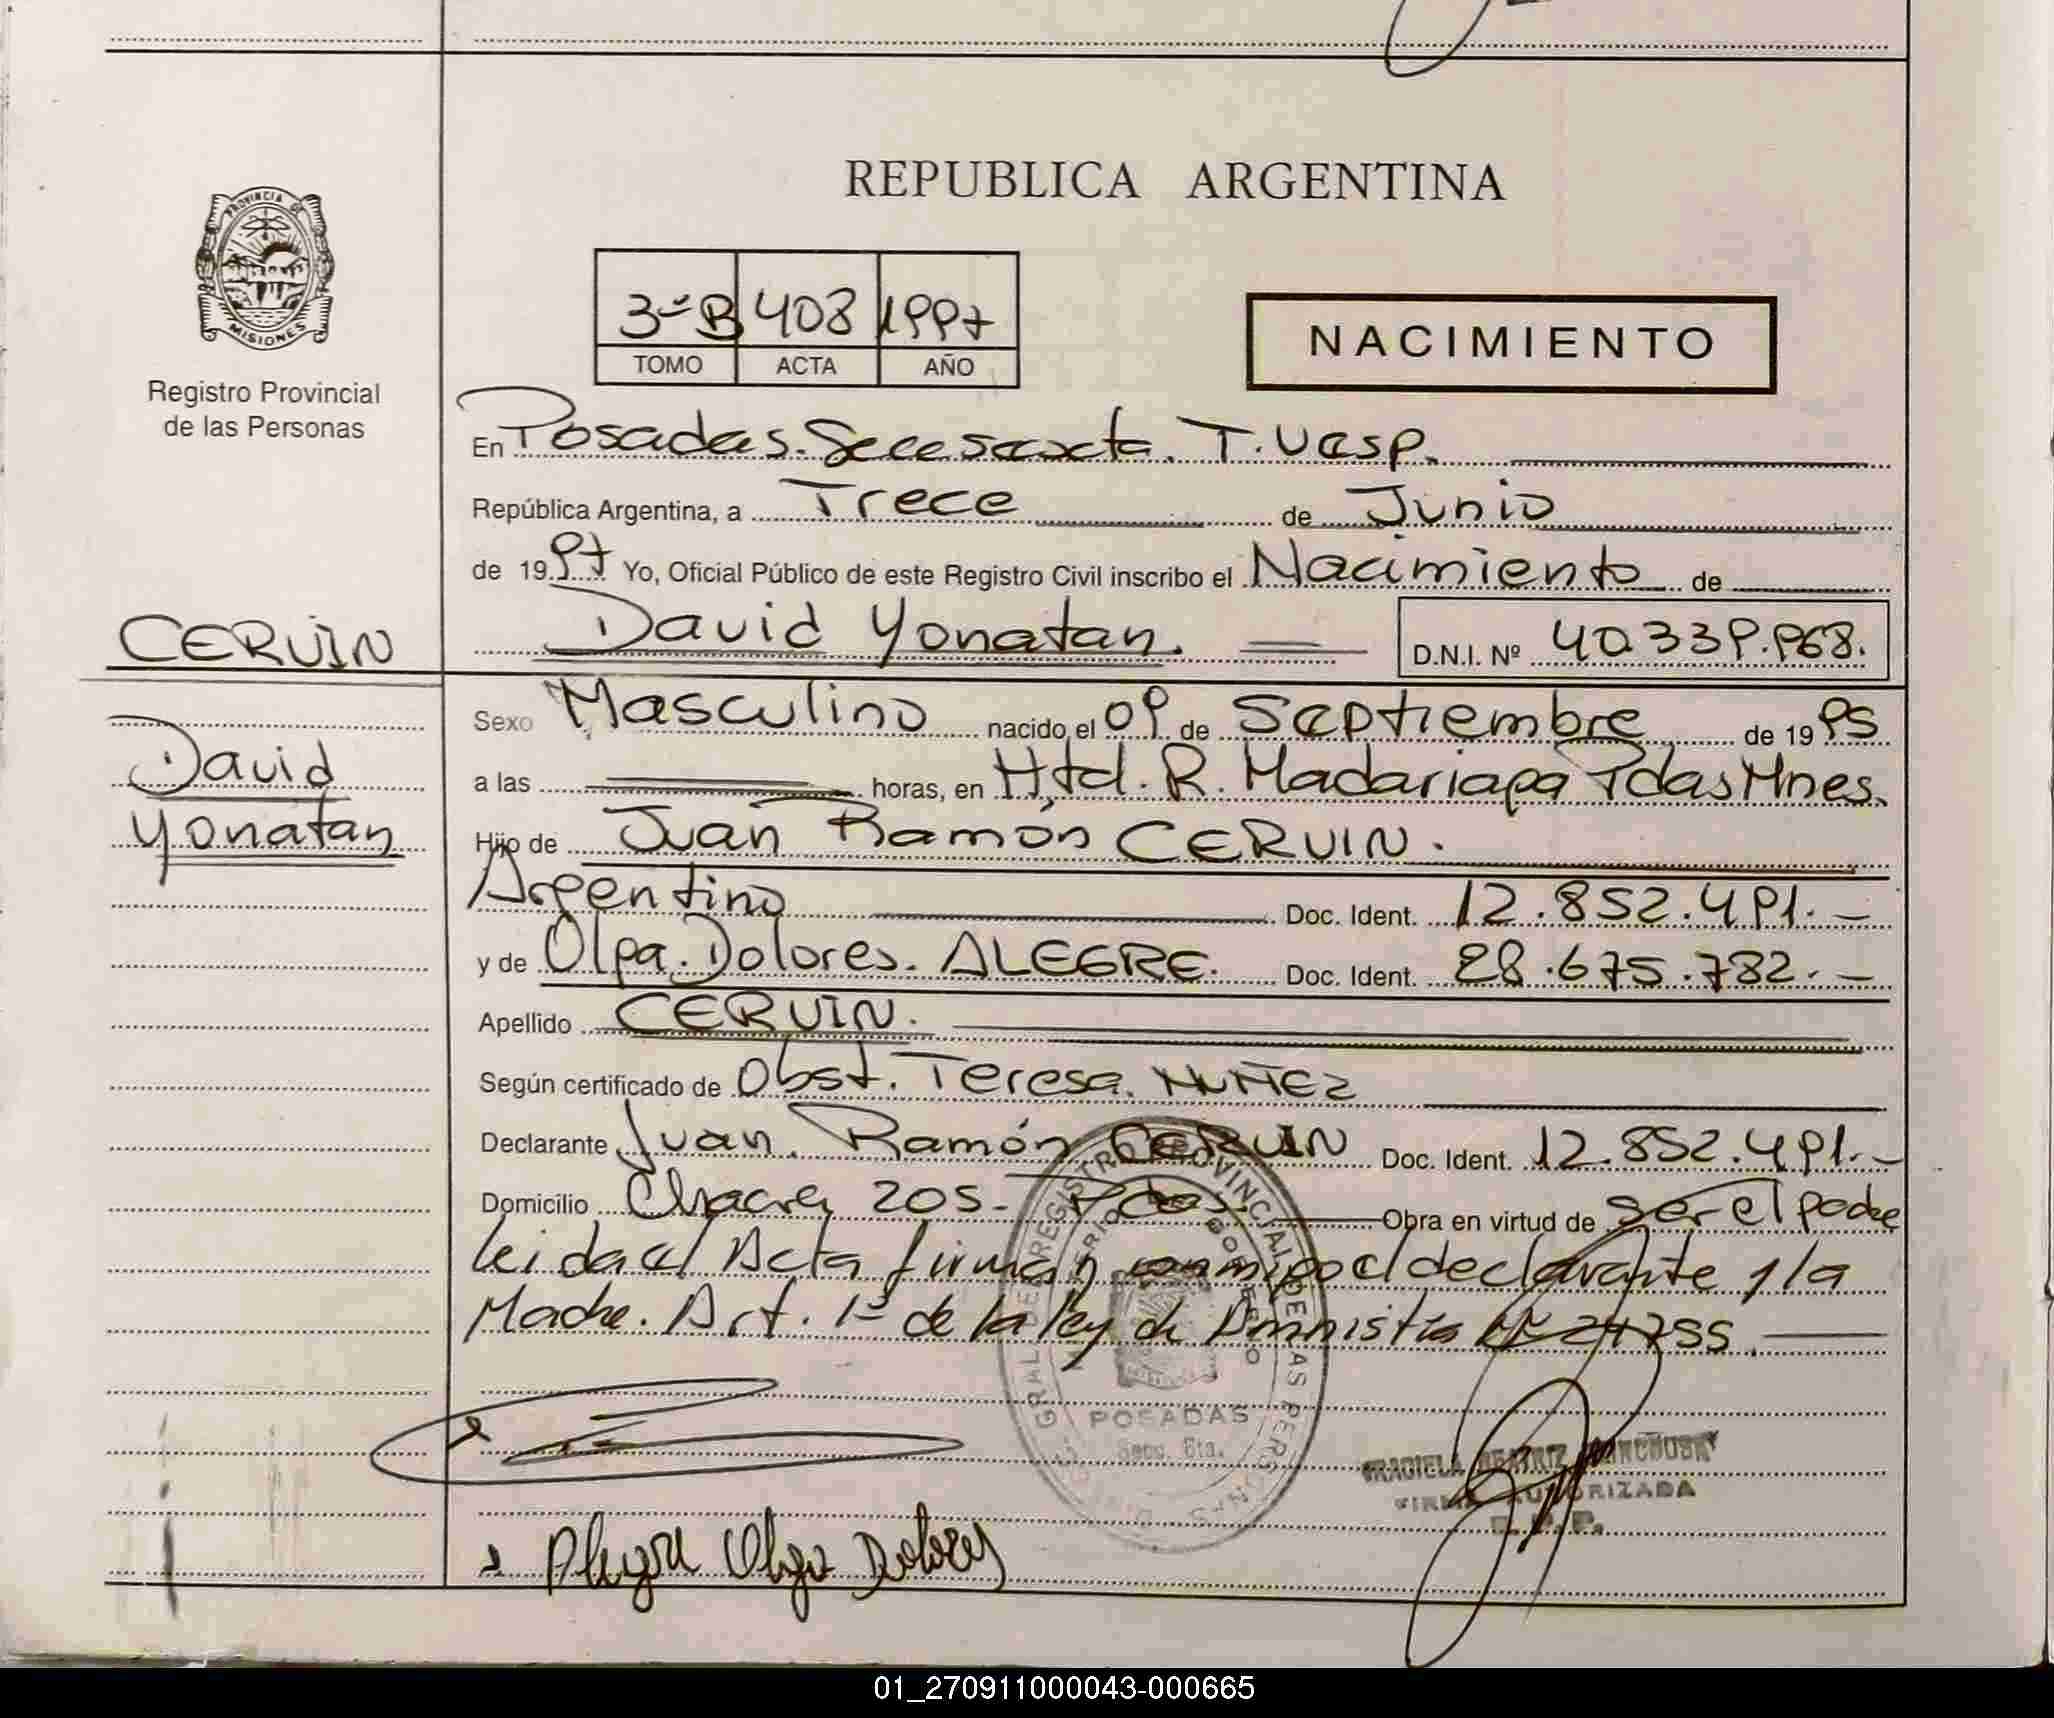 PROVINCIA DE
MISIONES
Registro Provincial
de las Personas
REPUBLICA ARGENTINA
3ºB 408 1997
TOMO ACTA AÑO
NACIMIENTO
En Posadas. Secc sexta. T. Uasp.
República Argentina, a Trece de Junio
de 1997 Yo, Oficial Público de este Registro Civil inscribo el Nacimiento de
CERVIN
David Yonatan. D.N.I. Nº 40.339.968.
David
Yonatan
Sexo Masculino nacido el 09 de Septiembre de 1995
a las horas, en Htal. R. Madariaga Pdas Mnes.
Hijo de Juan Ramón CERVIN.
Argentino Doc. Ident. 12.852.491.-
y de Olga. Dolores. ALEGRE. Doc. Ident. 28.675.782.-
Apellido CERVIN.
Según certificado de Obst. Teresa. NUÑEZ
Declarante Juan. Ramón CERVIN Doc. Ident. 12.852.491.-
Domicilio Chacra 205- Pdas. Obra en virtud de ser el padre
leida el Acta firman conmigo el declarante y la
Madre. Art. 1º de la ley de Amnistia Nº 24755.
POSADAS
Secc. 6ta.
GRACIELA BEATRIZ
FIRMA AUTORIZADA
R.P.P.
Alegre Olga Dolores
01_270911000043-000665